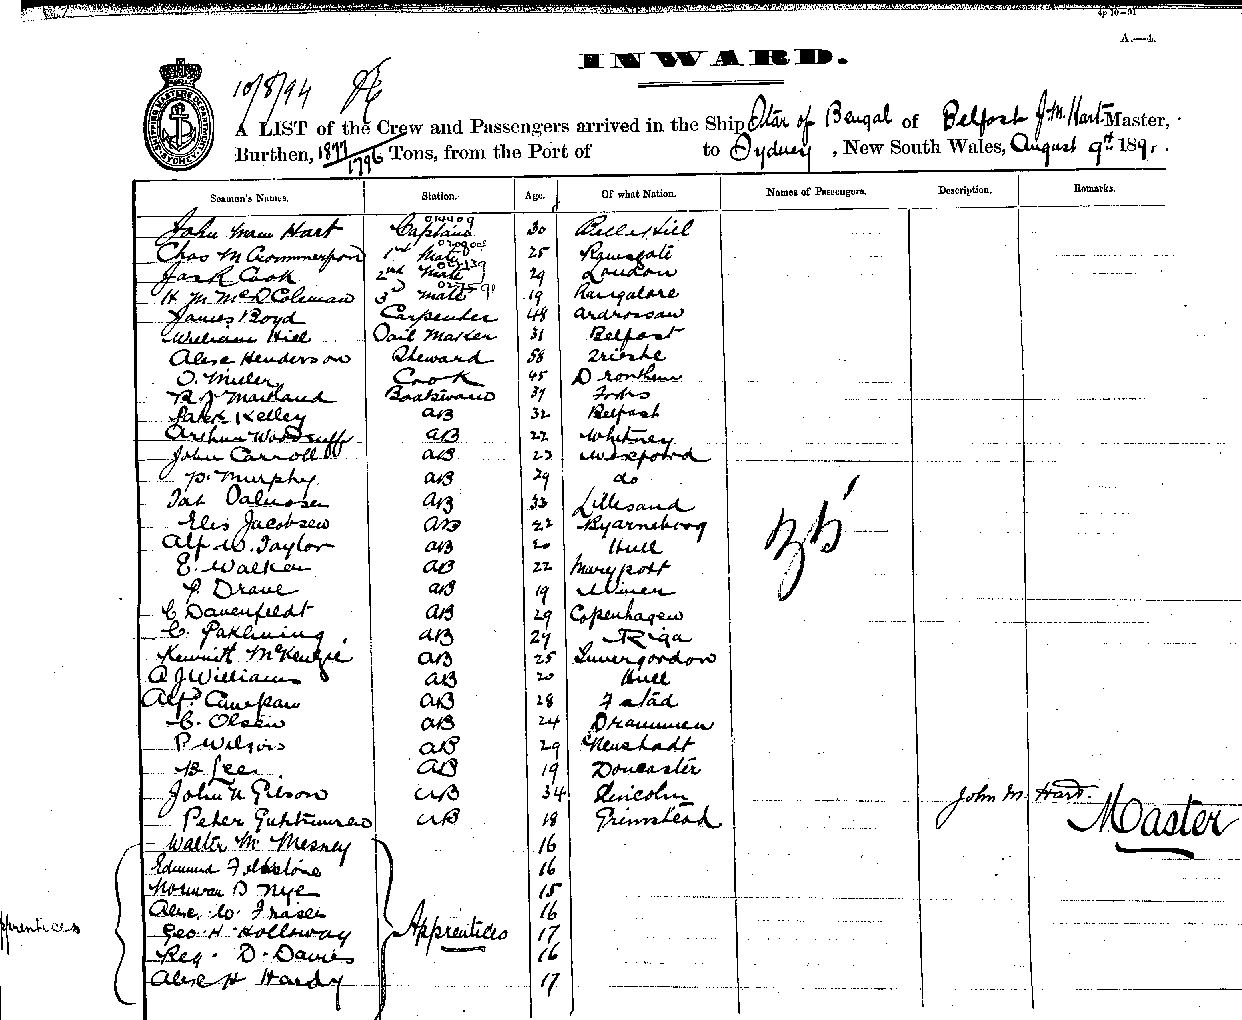 4p 10-91
A.—4.
INWARD.
10/8/94
A LIST of the Crew and Passengers arrived in the Ship Star of Bengal of Belfast J. M. Hart Master,
Burthen, 1877/1796 Tons, from the Port of to Sydney, New South Wales, August 9th 189
Seamen's Names. Station. Age. Of what Nation. Names of Passengers. Description. Remarks.
John Hart Captain 30
Chas M 1st Mate 25 Ramsgate
Jas R Cook 2nd Mate 29 London
H M McD Coleman 3rd Mate 19 Bangalore
James Boyd Carpenter 48 Ardrossan
William Hill Sail Maker 31 Belfast
Alexr Henderson Steward 58 Trieste
O. Cook 45 Drontheim
R J Maitland Boatswain 37
Kelley AB 32 Belfast
Arthur Woodruff AB 22 Whitney
John Carroll AB 23 Wexford
P. Murphy AB 29 do
AB 33 Lillesand
Elis Jacobsen AB 22 Byarneborg
Alf W. Taylor AB 20 Hull
E. Walker AB 22 Maryport
AB 19
C Davenfeldt AB 29 Copenhagen
C. AB 29 Riga
Kenneth McKenzie AB 25 Invergordon
A J Williams AB 20 Hull
Alfd AB 28 F stad
C. Olsen AB 24 Drammen
P Wilson AB 29 Neustadt
B Lee AB 19 Doncaster
John N Gibson AB 34 Lincoln
Peter AB 18 Grimstead
Walter M Mesney 16
Edmund 16
Norman D Nye 15
Alex. W. Fraser 16
Geo H Holloway 17
Reg. D. Davies 16
Alex H Hardy 17
Apprentices
John M. Hart.
Master